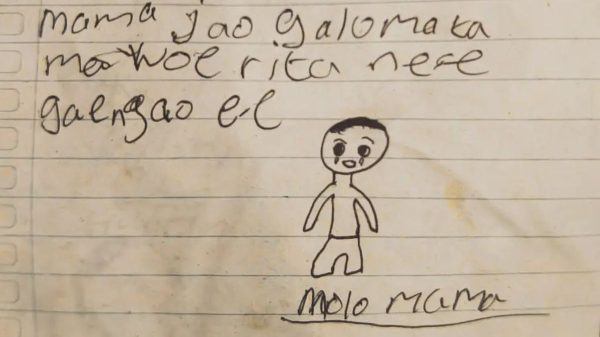 mama jao galomaka
mawoe rita ne-e
gaengao e-e
molo mama